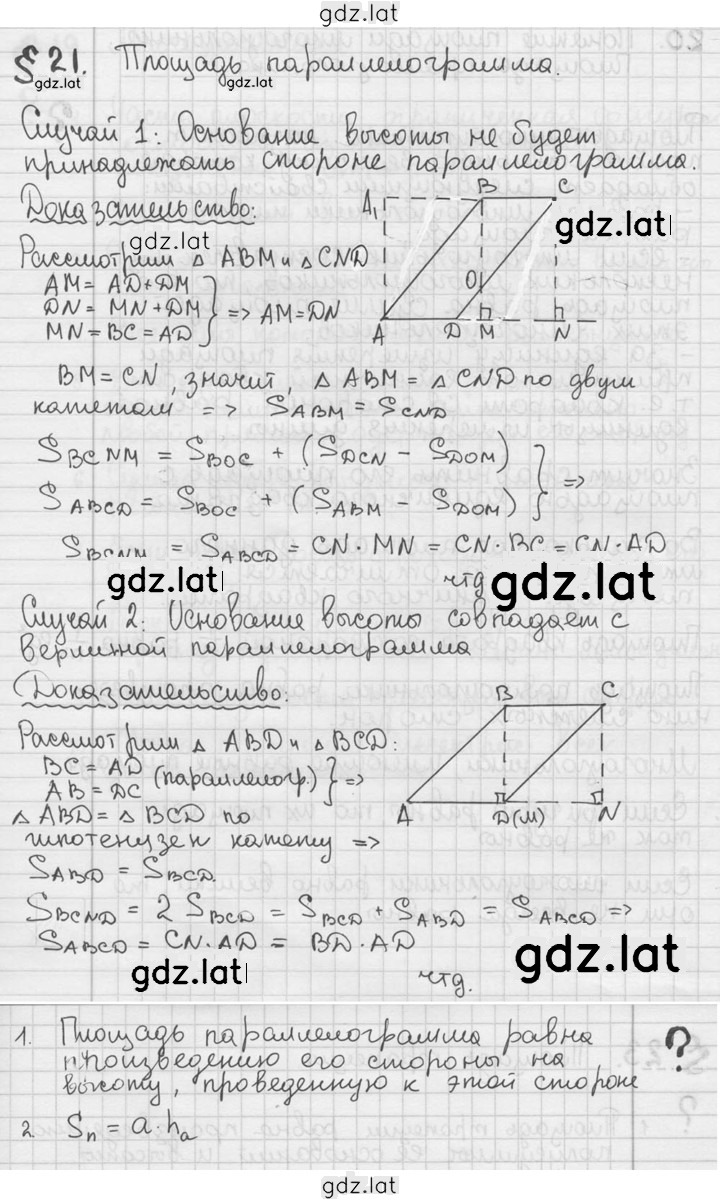 gdz.lat
§ 21. Площадь параллелограмма.
gdz.lat gdz.lat
Случай 1: Основание высоты не будет
принадлежать стороне параллелограмма.
Доказательство:
gdz.lat
A₁ B C
gdz.lat
Рассмотрим △ ABM и △ CND
AM = AD+DM
DN = MN + DM
MN = BC = AD
} => AM = DN
O
A D M N
BM = CN, значит, △ ABM = △ CND по двум
катетам => S_ABM = S_CND
S_BCNM = S_BOC + (S_DCN − S_DOM)
S_ABCD = S_BOC + (S_ABM − S_DOM)
} =>
S_BCNM = S_ABCD = CN·MN = CN·BC = CN·AD
gdz.lat чтд gdz.lat
Случай 2: Основание высоты совпадает с
вершиной параллелограмма
Доказательство:
B C
Рассмотрим △ ABD и △ BCD:
BC = AD
AB = DC
(параллелогр.) } =>
A D(M) N
△ ABD = △ BCD по
гипотенузе и катету =>
S_ABD = S_BCD.
S_BCND = 2 S_BCD = S_BCD + S_ABD = S_ABCD =>
S_ABCD = CN·AD = BD·AD
gdz.lat чтд. gdz.lat
1. Площадь параллелограмма равна ?
произведению его стороны на
высоту, проведенную к этой стороне
2. Sₙ = a·hₐ
gdz.lat